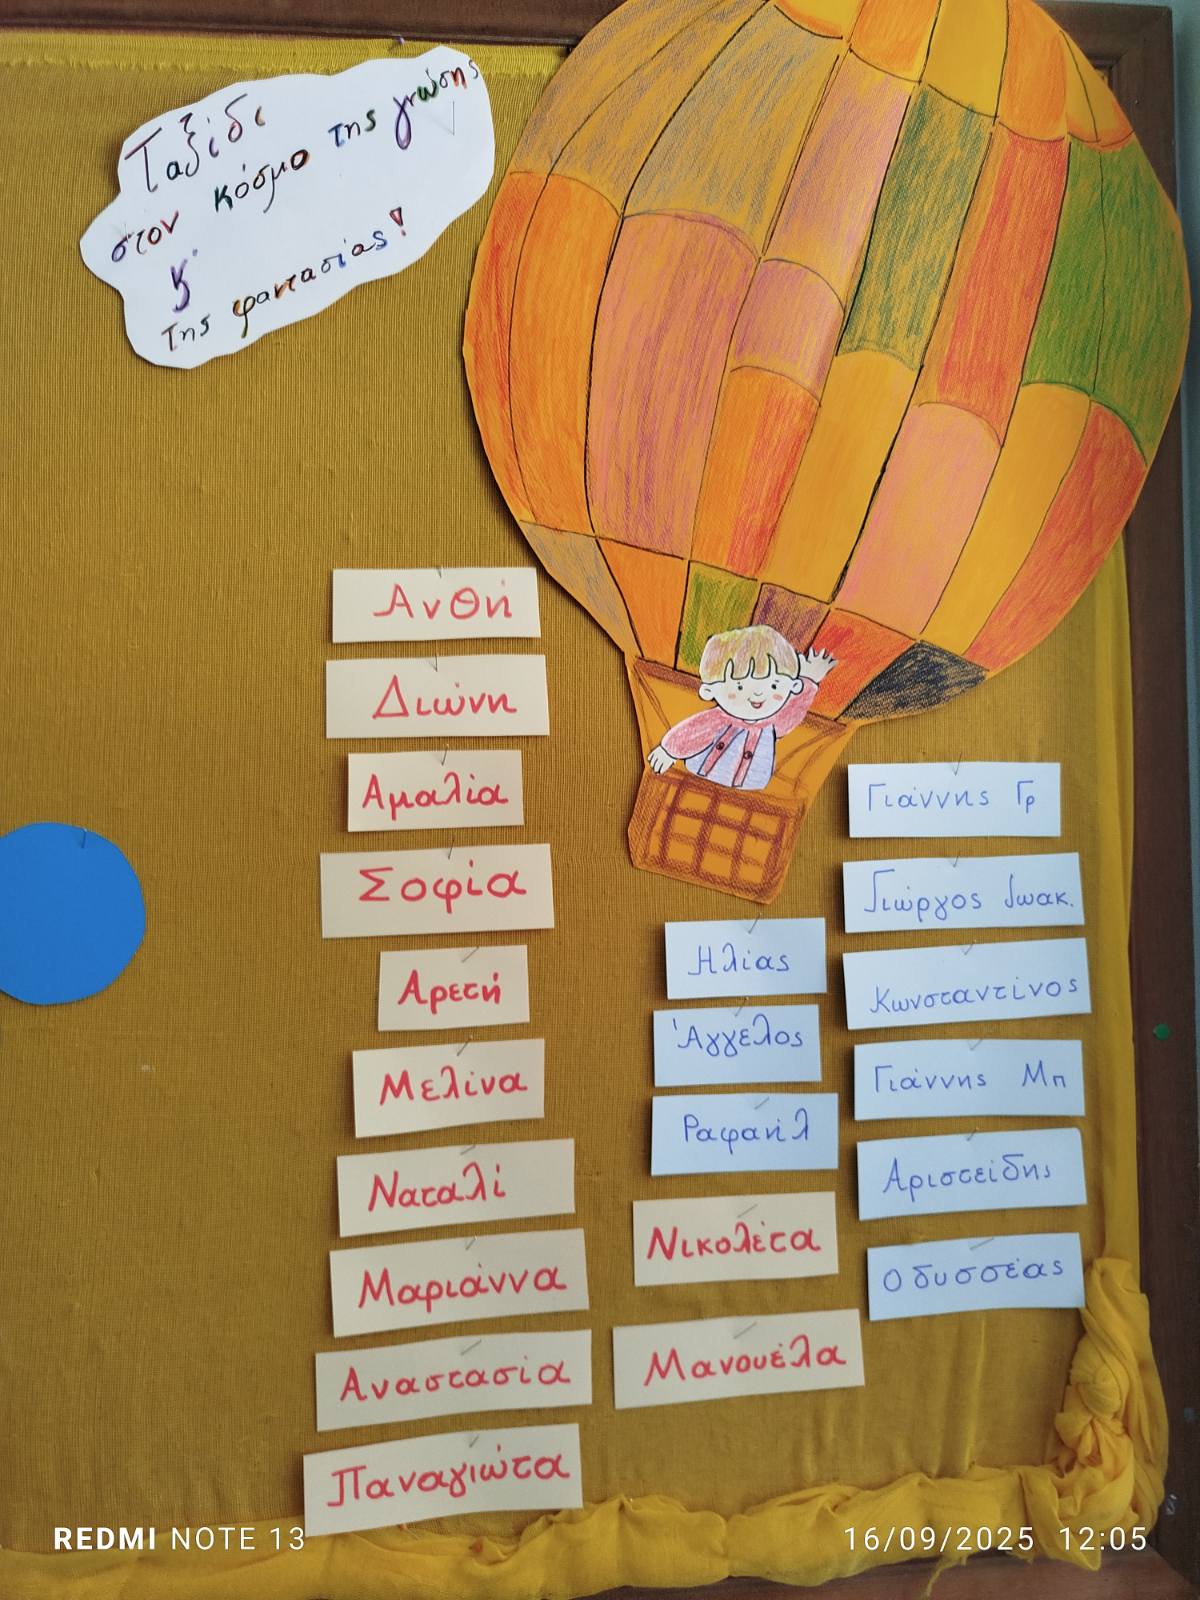 Ταξίδι
στον κόσμο της γνώσης
&
της φαντασίας!
Ανθή
Διώνη
Αμαλία
Σοφία
Αρετή
Μελίνα
Ναταλί
Μαριάννα
Αναστασία
Παναγιώτα
Ηλίας
Άγγελος
Ραφαήλ
Νικολέτα
Μανουέλα
Γιάννης Γρ
Γιώργος Ιωακ.
Κωνσταντίνος
Γιάννης Μπ
Αριστείδης
Οδυσσέας
REDMI NOTE 13
16/09/2025 12:05